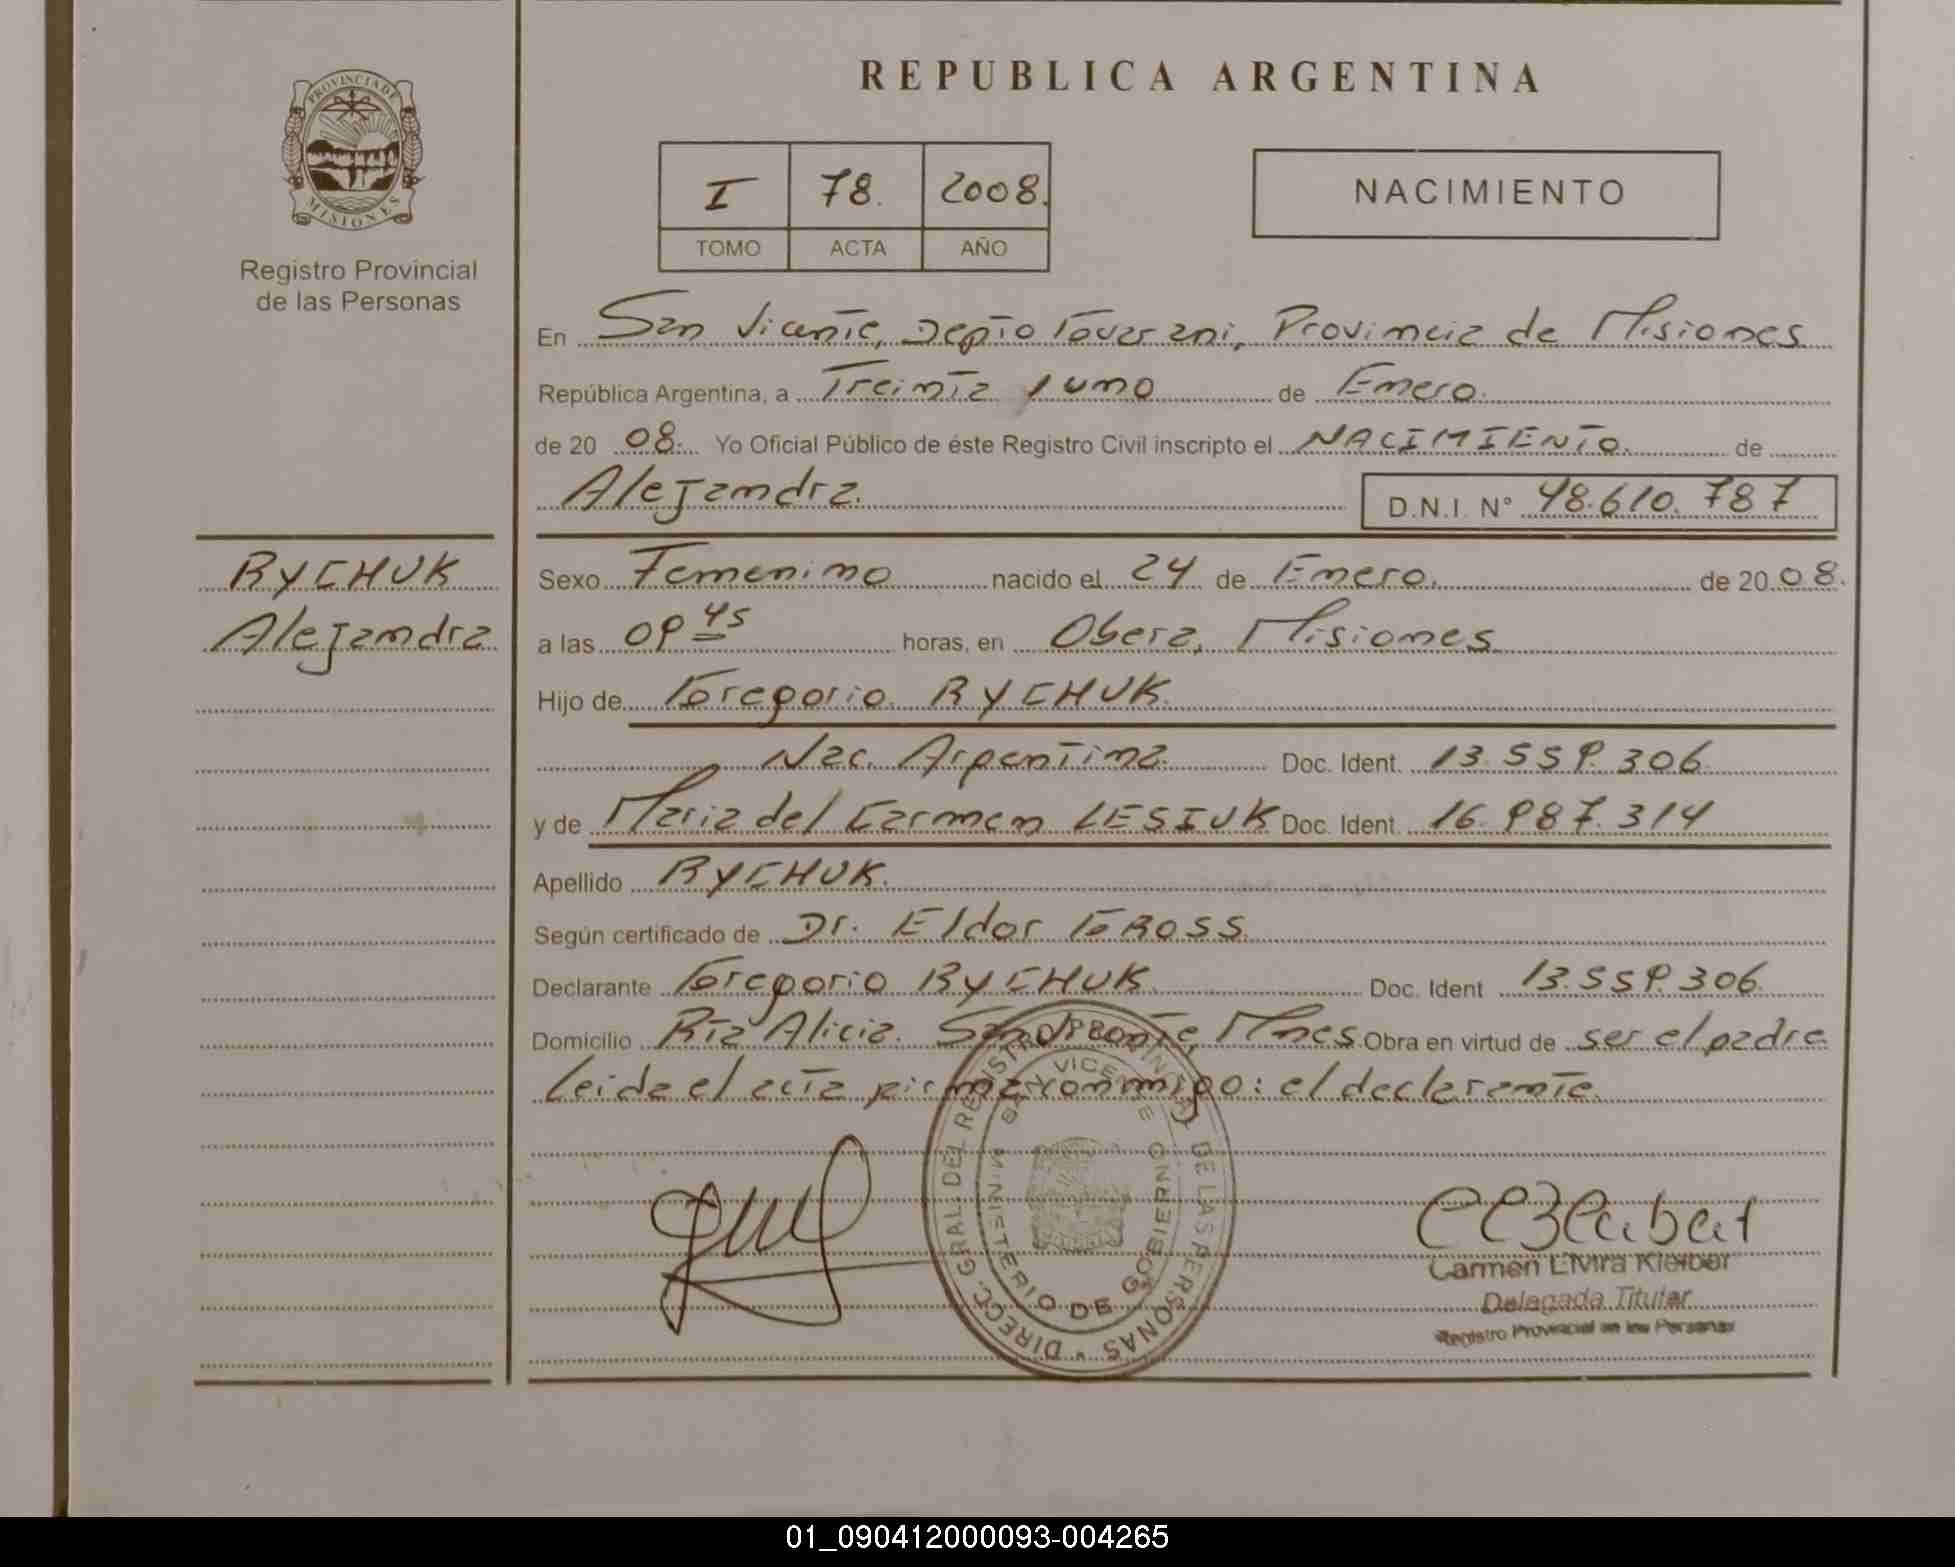 PROVINCIA DE
MISIONES
Registro Provincial
de las Personas
REPUBLICA ARGENTINA
I 78. 2008.
TOMO ACTA AÑO
NACIMIENTO
En San Vicente, Depto Guarani, Provincia de Misiones
República Argentina, a Treinta y uno de Enero.
de 20 08. Yo Oficial Público de éste Registro Civil inscripto el NACIMIENTO. de
Alejandra. D.N.I. N° 48.610.787
RYCHUK
Alejandra
Sexo Femenino nacido el 24 de Enero. de 20 08.
a las 09 45 horas, en Obera, Misiones
Hijo de Gregorio RYCHUK.
Nac. Argentina. Doc. Ident. 13.559.306
y de Maria del Carmen LESIUK Doc. Ident. 16.987.314
Apellido RYCHUK.
Según certificado de Dr. Eldor GROSS.
Declarante Gregorio RYCHUK Doc. Ident 13.559.306
Domicilio Pta Alicia. San Vicente, Mnes Obra en virtud de ser el padre
Leida el acta firma conmigo: el declarante.
DIRECC. GRAL. DEL REGISTRO PROVINCIAL DE LAS PERSONAS
SAN VICENTE
MINISTERIO DE GOBIERNO
Carmen Elvira Kleibar
Delegada Titular
Registro Provincial de las Personas
01_090412000093-004265